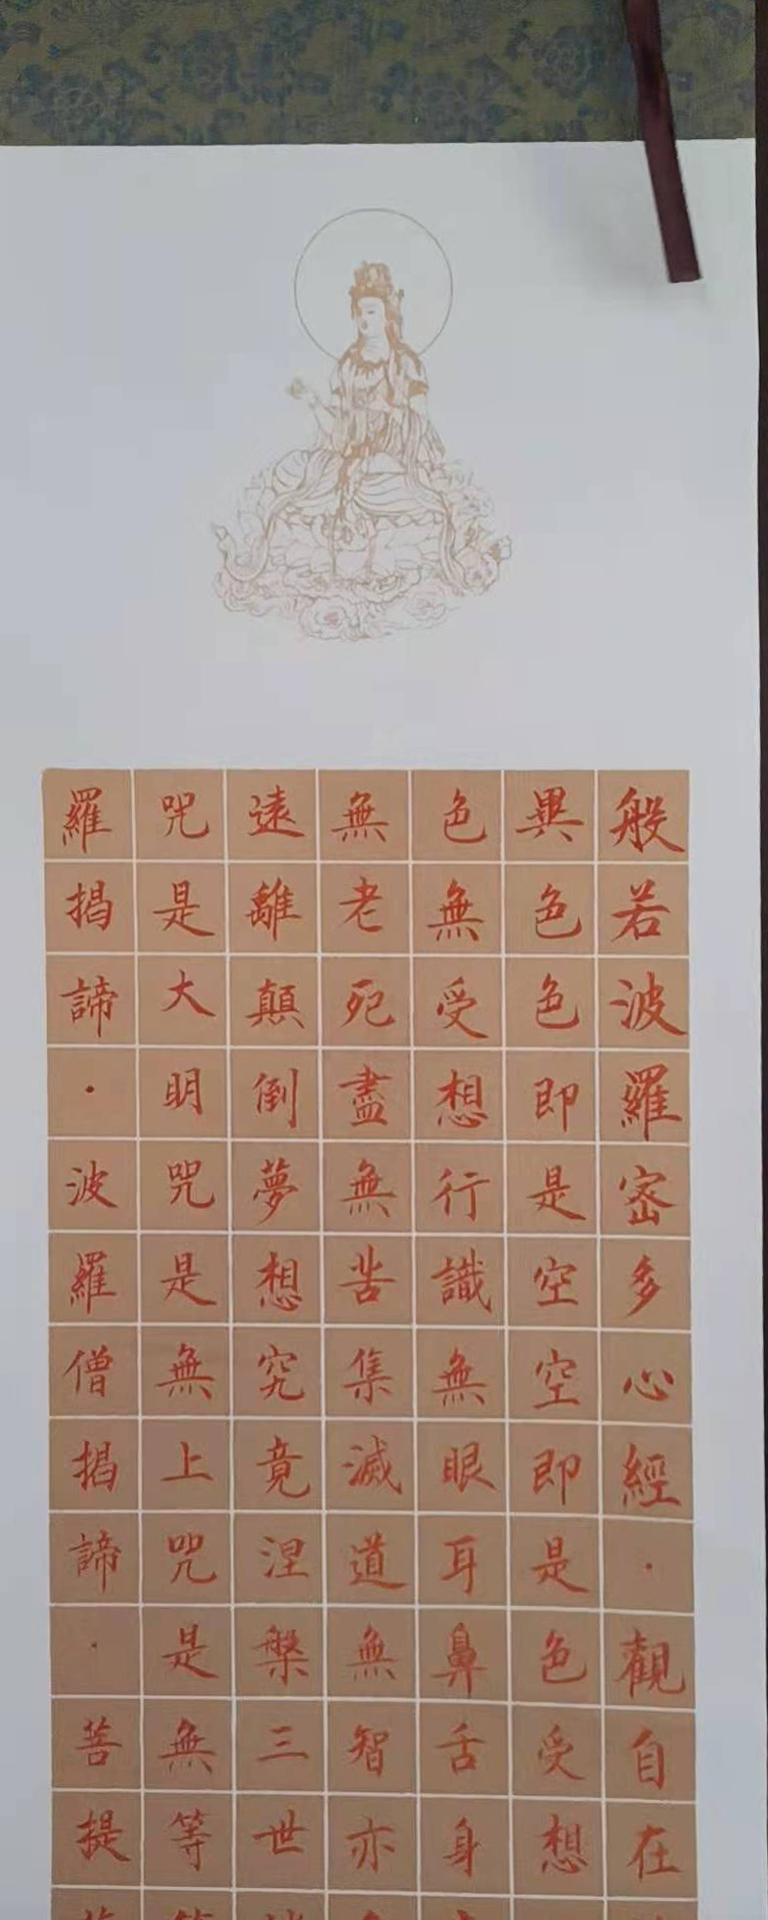 般若波羅密多心經·觀自在
異色色即是空空即是色受想
色無受想行識無眼耳鼻舌身
無老死盡無苦集滅道無智亦
遠離顛倒夢想究竟涅槃三世
咒是大明咒是無上咒是無等
羅揭諦·波羅僧揭諦·菩提